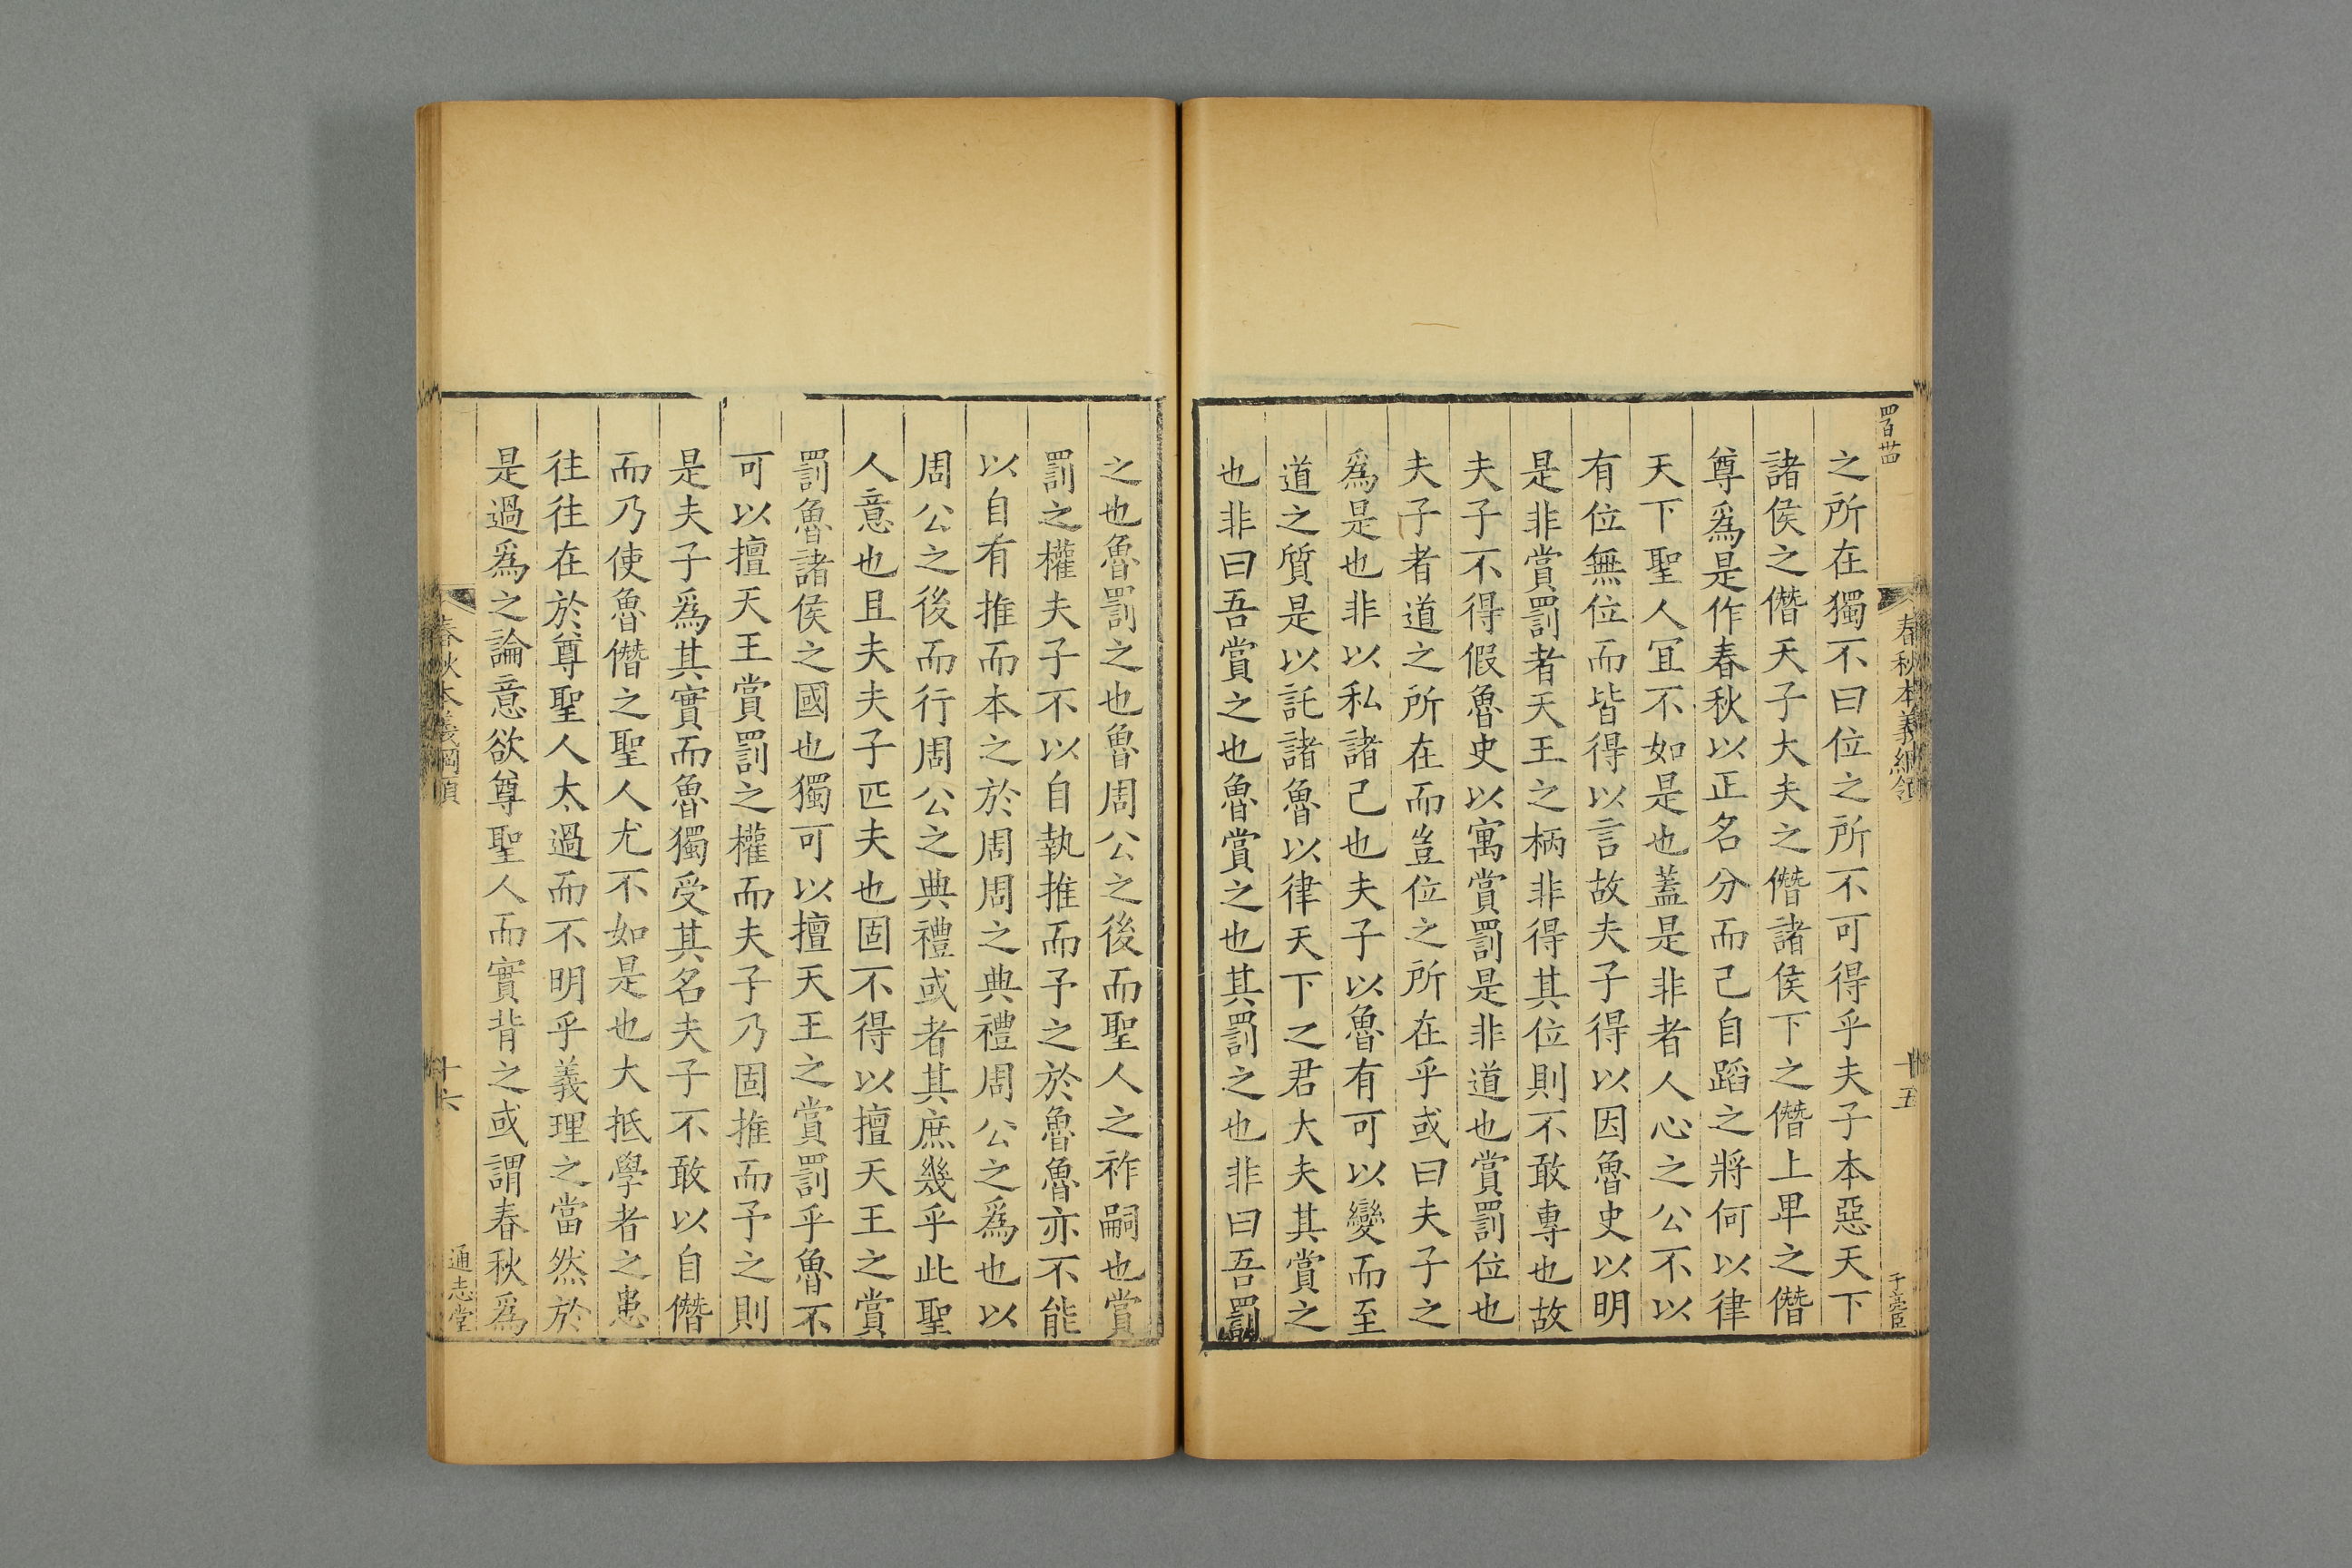 四百卌四
春秋本義綱領
十五
子亮臣
之所在獨不曰位之所不可得乎夫子本惡天下
諸侯之僭天子大夫之僭諸侯下之僭上卑之僭
尊爲是作春秋以正名分而己自蹈之將何以律
天下聖人冝不如是也蓋是非者人心之公不以
有位無位而皆得以言故夫子得以因魯史以明
是非賞罰者天王之柄非得其位則不敢專也故
夫子不得假魯史以寓賞罰是非道也賞罰位也
夫子者道之所在而豈位之所在乎或曰夫子之
爲是也非以私諸己也夫子以魯有可以變而至
道之質是以託諸魯以律天下之君大夫其賞之
也非曰吾賞之也魯賞之也其罰之也非曰吾罰
之也魯罰之也魯周公之後而聖人之祚嗣也賞
罰之權夫子不以自執推而予之於魯魯亦不能
以自有推而本之於周周之典禮周公之爲也以
周公之後而行周公之典禮或者其庶幾乎此聖
人意也且夫夫子匹夫也固不得以擅天王之賞
罰魯諸侯之國也獨可以擅天王之賞罰乎魯不
可以擅天王賞罰之權而夫子乃固推而予之則
是夫子爲其實而魯獨受其名夫子不敢以自僭
而乃使魯僭之聖人尤不如是也大抵學者之患
往往在於尊聖人太過而不明乎義理之當然於
是過爲之論意欲尊聖人而實背之或謂春秋爲
春秋本義綱領
十六
通志堂